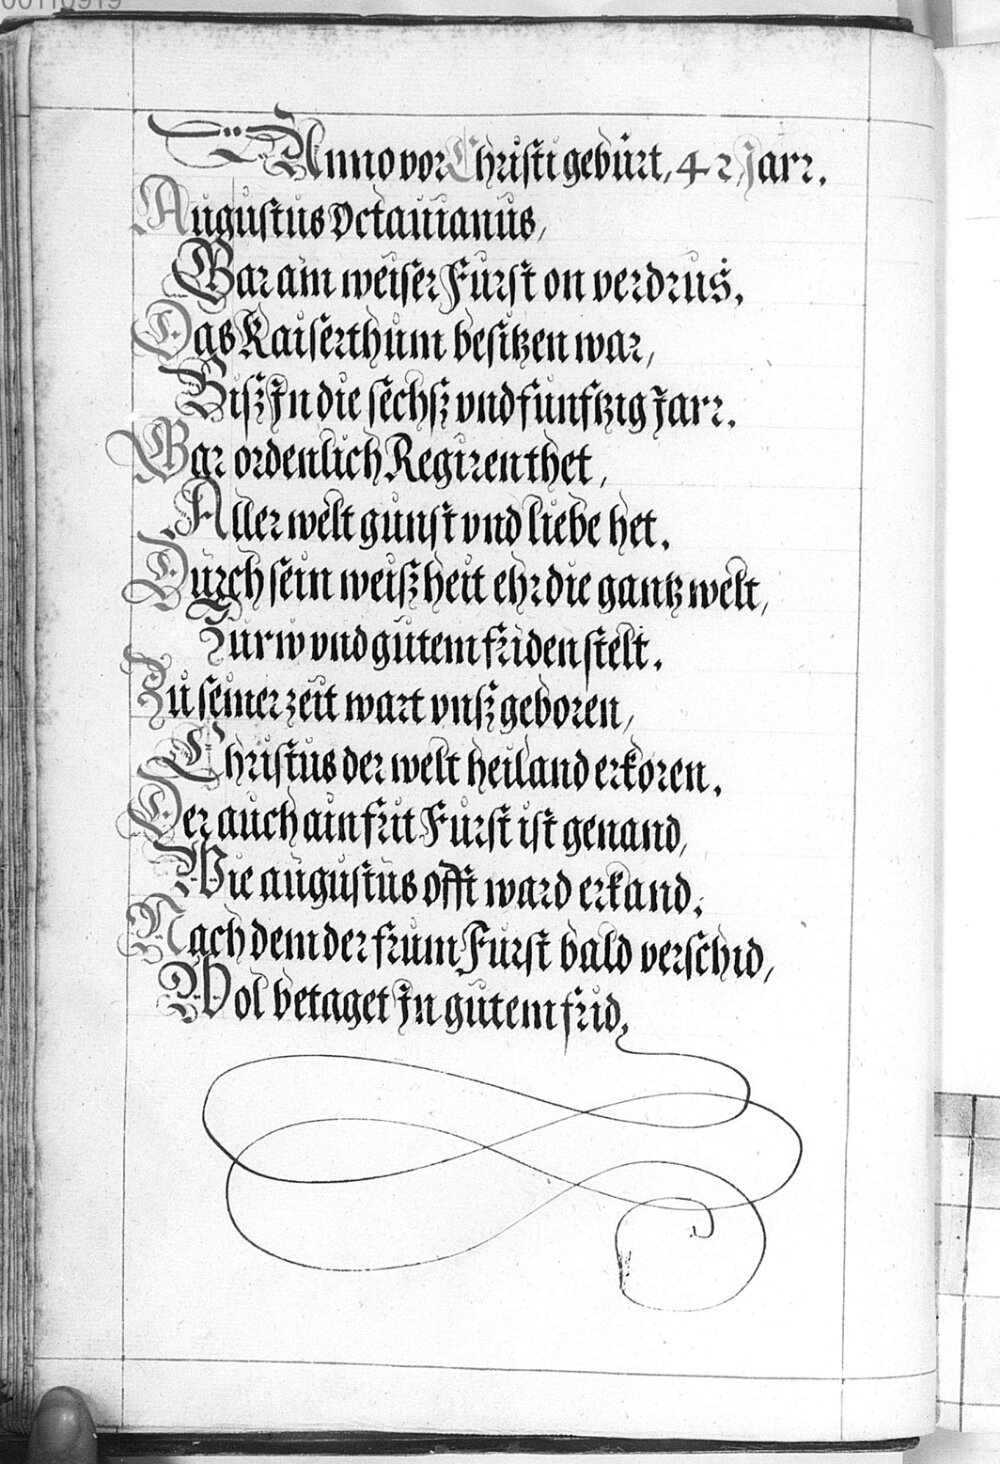 00110919
Anno vor Christi gebürt, 42, Jarr.
Augustus Octauianus,
War ain weiser Fürst on verdrus.
Das Kaiserthum besitzen war,
Bisz In die sechsz vnd funftzig Jarr.
War ordenlich Regiren thet,
Aller welt gunst vnd liebe het.
Durch sein weiszheit ehr die gantz welt,
Zu rw vnd gutem friden stelt.
Zu seiner zeit wart vnsz geboren,
Christus der welt heiland erkoren.
Der auch ain frit Fürst ist genand,
Wie augustus offt ward erkand.
Nach dem der frum Fürst bald verschid,
Wol betaget In gutem frid.